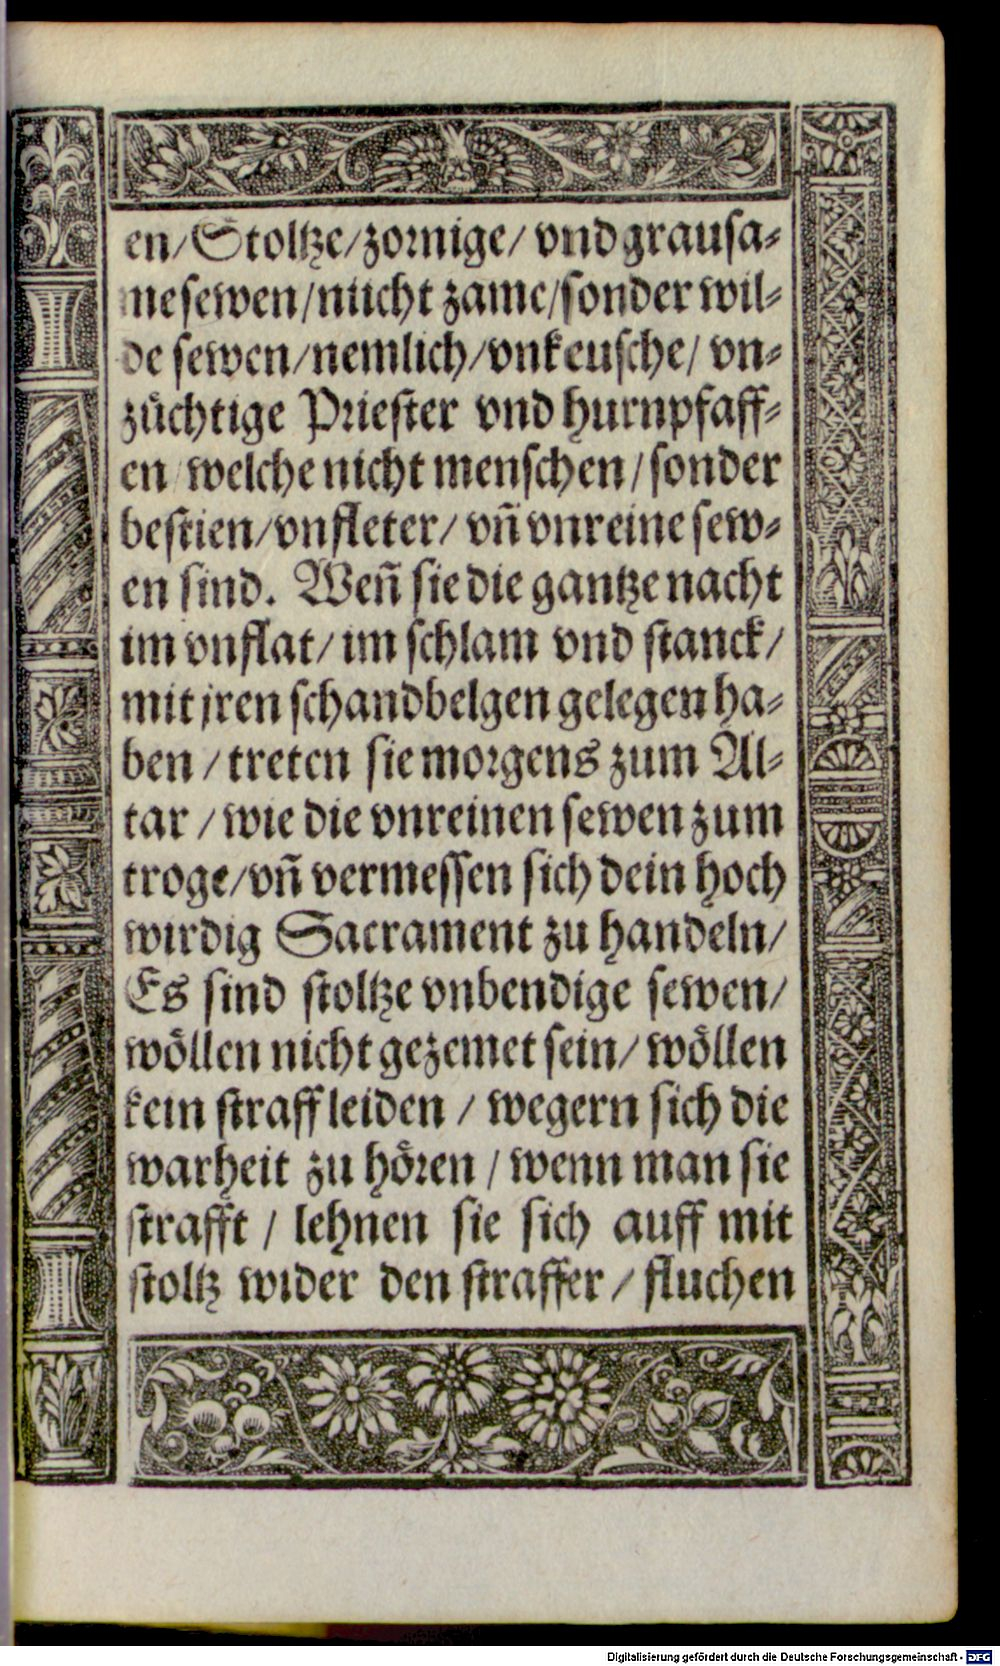 en/ Stoltze/ zornige/ vnd grausa⸗
me sewen/ nucht zame/ sonder wil⸗
de sewen/ nemlich/ vnkeusche/ vn⸗
züchtige Priester vnd hurnpfaff⸗
en welche nicht menschen/ sonder
bestien/ vnfleter/ vñ vnreine sew⸗
en sind. Weñ sie die gantze nacht
im vnflat/ im schlam vnd stanck/
mit jren schandbelgen gelegen ha⸗
ben / treten sie morgens zum Al⸗
tar / wie die vnreinen sewen zum
troge/ vñ vermessen sich dein hoch
wirdig Sacrament zu handeln/
Es sind stoltze vnbendige sewen/
wöllen nicht gezemet sein/ wöllen
kein straff leiden / wegern sich die
warheit zu hören / wenn man sie
strafft / lehnen sie sich auff mit
stoltz wider den straffer / fluchen
Digitalisierung gefördert durch die Deutsche Forschungsgemeinschaft - DFG